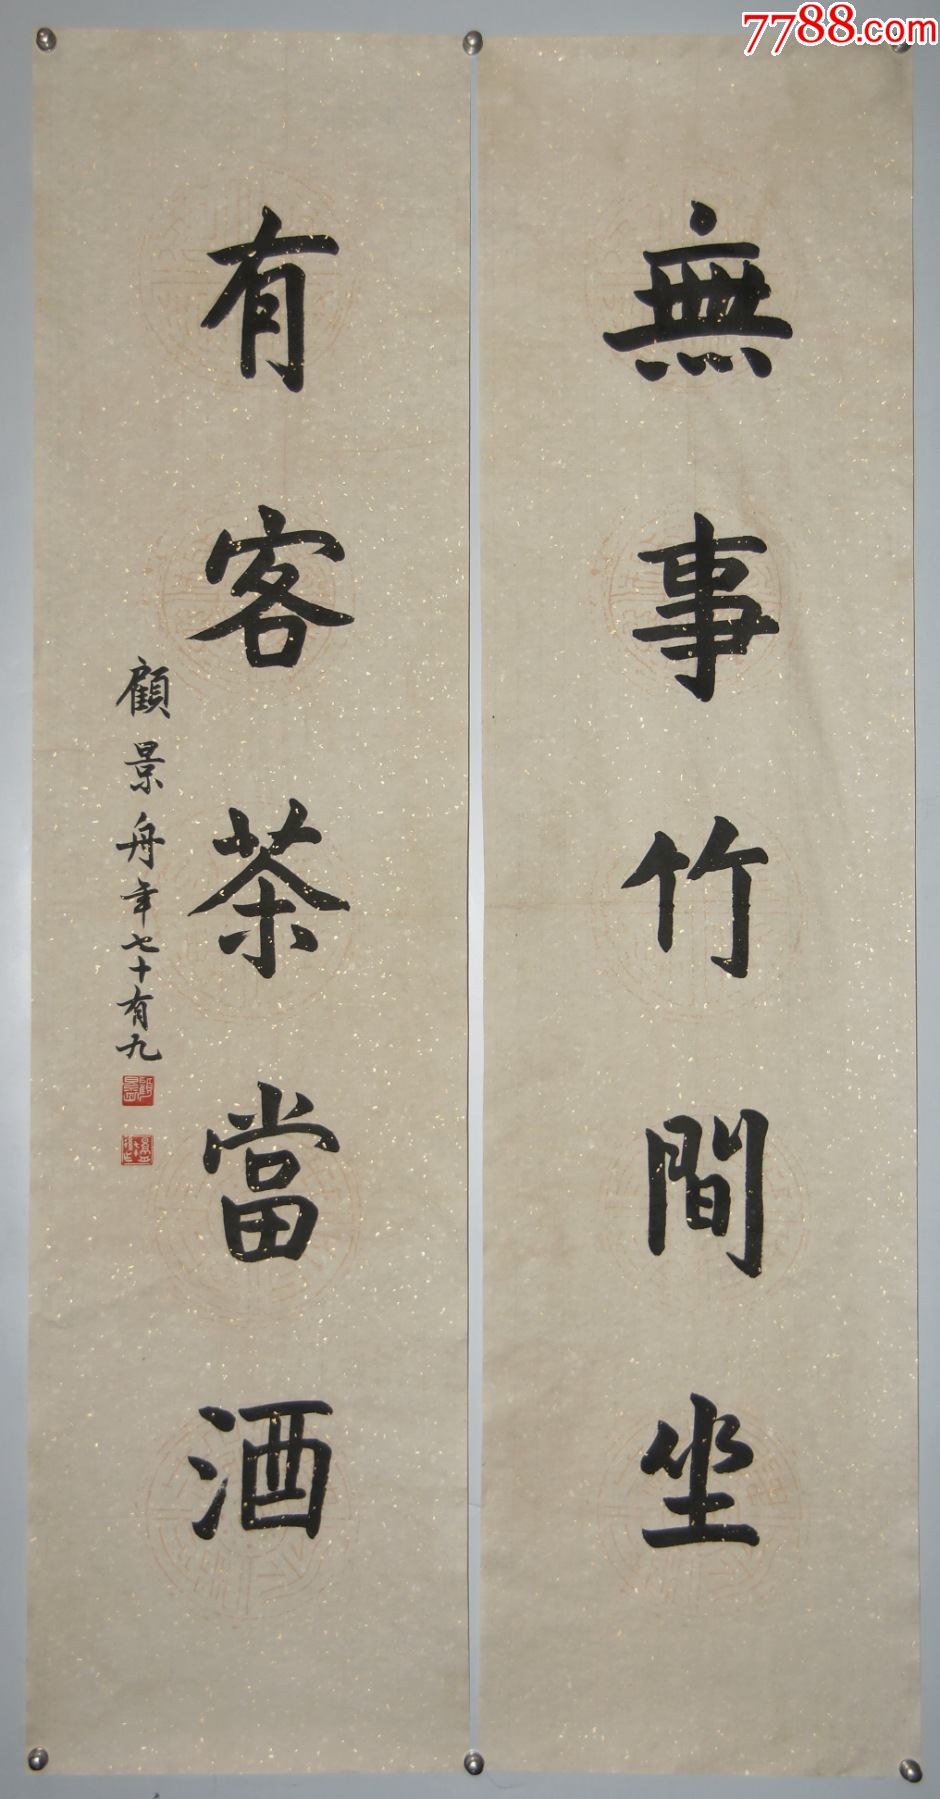 7788.com
無事竹間坐
有客茶當酒
顧景舟年七十有九